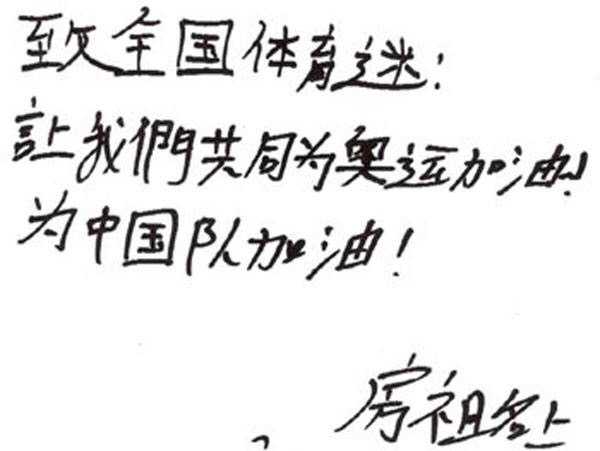 致全国体育迷：
訁上我們共同为奥运加油！
为中国队加油！
房祖名上